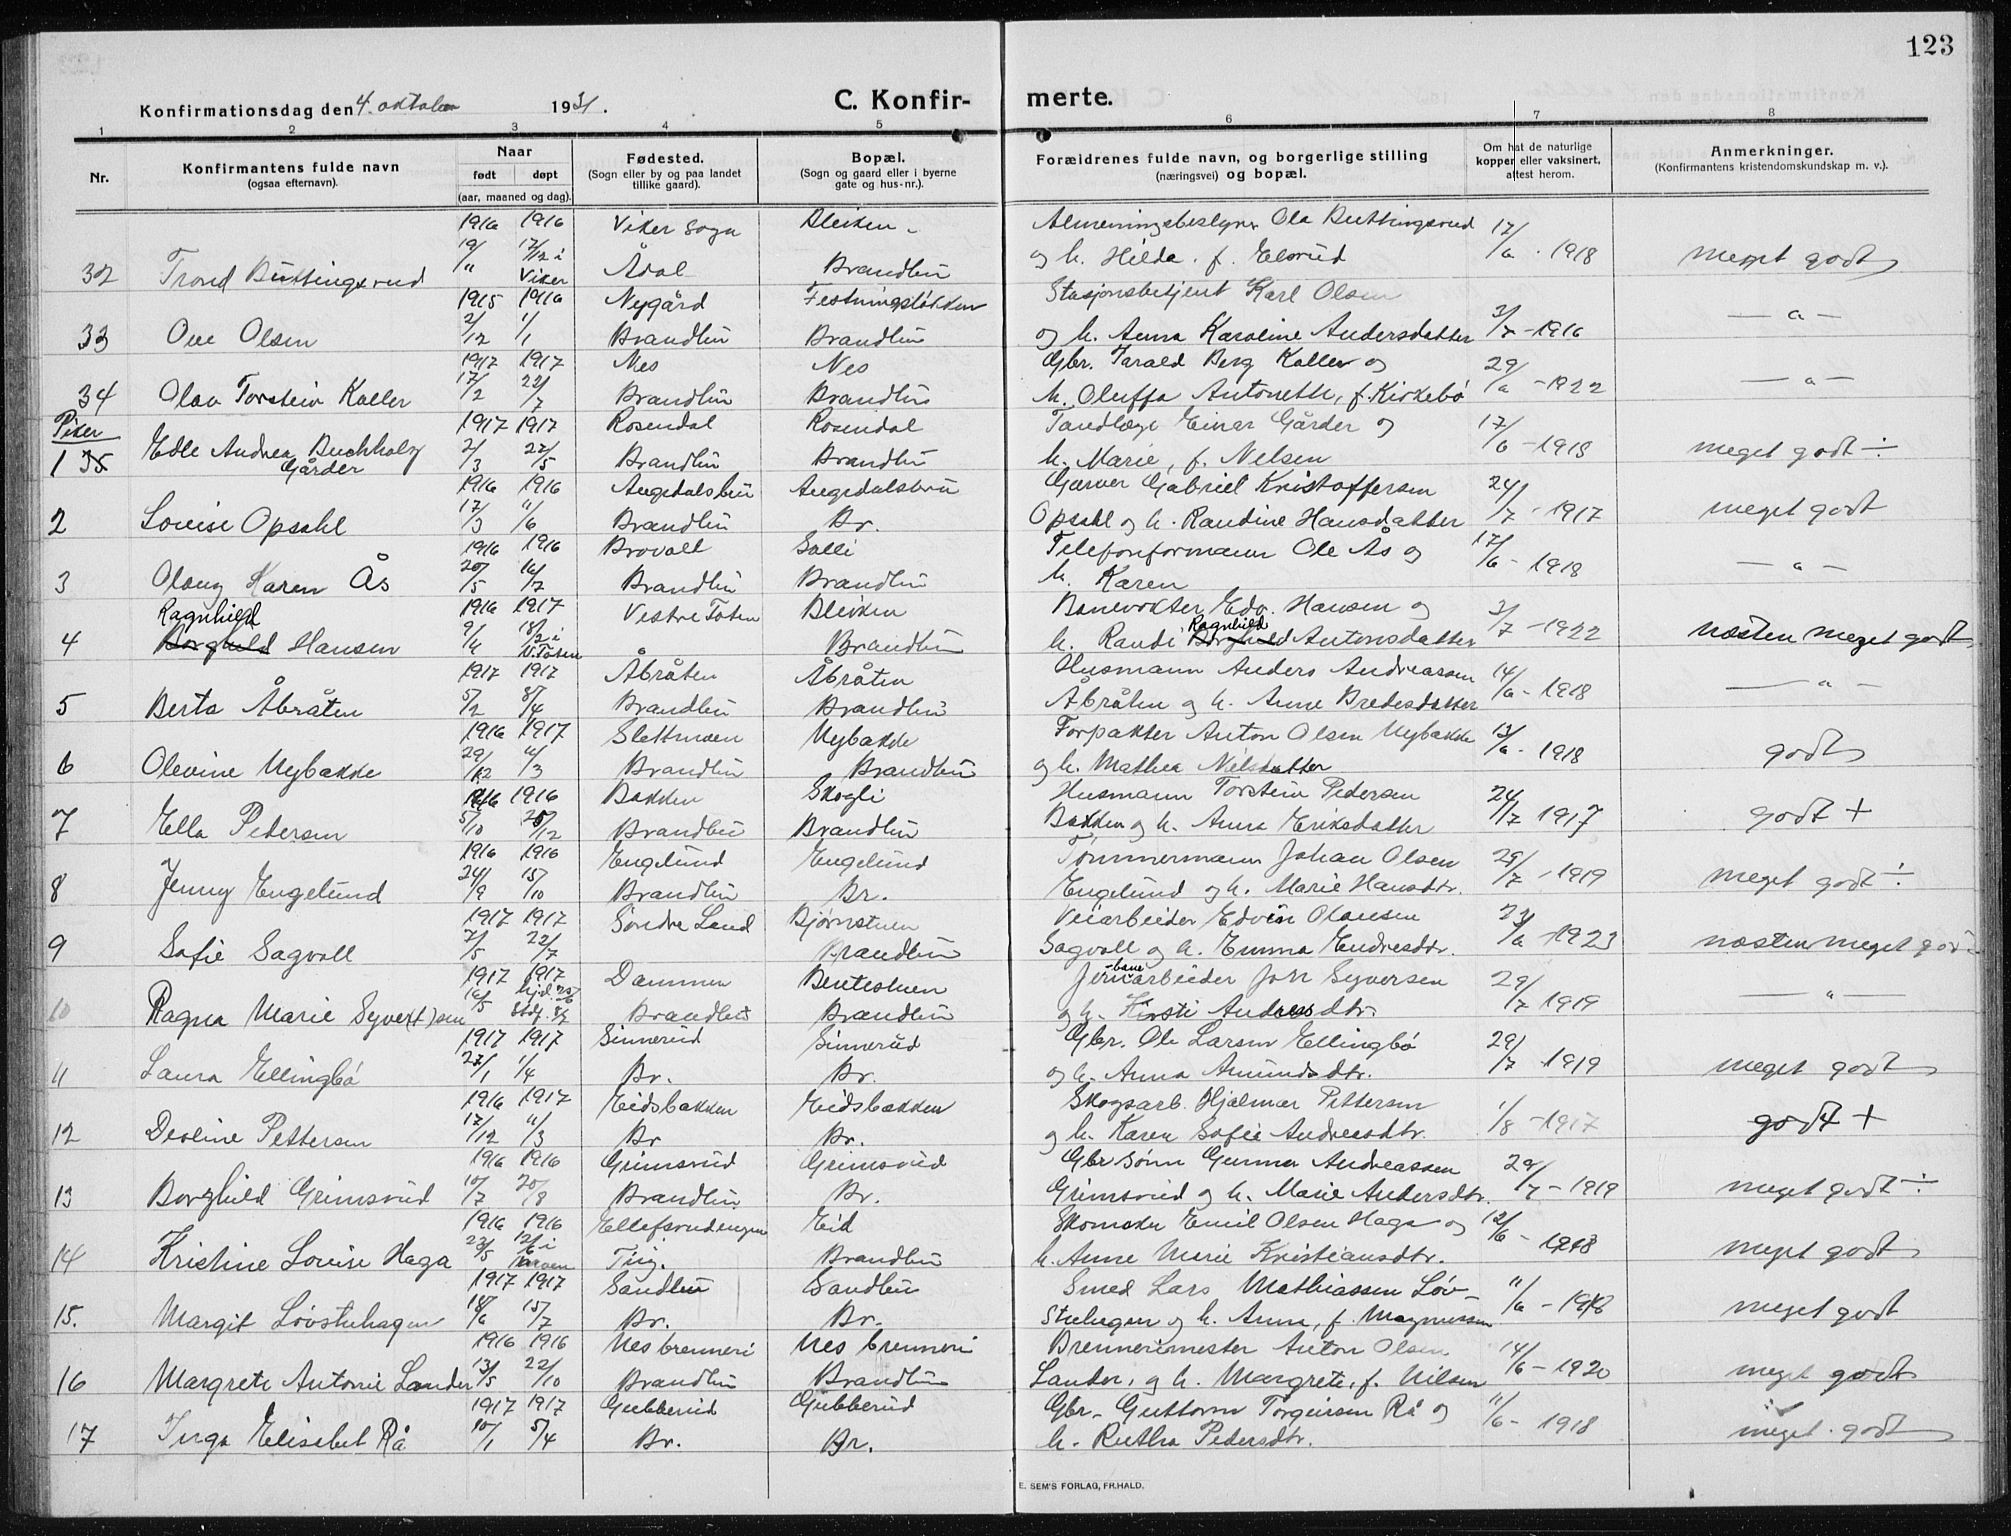 123
Konfirmationsdag den 4. oktober 1931. C. Konfirmerte.
1 2 3 4 5 6 7 8
Nr.
Konfirmantens fulde navn
(ogsaa efternavn).
Naar
født døpt
(aar, maaned og dag).
Fødested.
(Sogn eller by og paa landet
tillike gaard).
Bopæl.
(Sogn og gaard eller i byerne
gate og hus-nr.).
Forældrenes fulde navn, og borgerlige stilling
(næringsvei) og bopæl.
Om hat de naturlige
kopper eller vaksinert,
attest herom.
Anmerkninger.
(Konfirmantens kristendomskundskap m. v.).
1916 1916 Viker sogn Bleiken Almenningsbestyrer Ola Buttingsrud 17/6 - 1918
32 Trond Buttingsrud 19/11 17/12 i Viker Ådal Brandbu og h. Hilda f. Elsrud meget godt
1915 1916 Nygård Festningsløkken Stasjonsbetjent Karl Olsen
33 Ove Olsen 2/12 1/1 Brandbu Brandbu og h. Anna Karoline Andersdatter 3/7 - 1916 — " —
1917 1917 Nes Nes Gbr. Tarald Berg Koller og
34 Olav Torstein Koller 17/2 22/7 Brandbu Brandbu h. Oluffa Antonette, f. Kirkebö 29/6 - 1922 — " —
Piker
1917 1917 Rosendal Rosendal Tandlæge Einar Gårder og
1 35 Edle Andrea Buchholz Gårder 2/3 22/5 Brandbu Brandbu h. Marie, f. Nelsen 17/6 - 1918 meget godt ÷
1916 1916 Augedalsbru Augedalsbru Garver Gabriel Kristoffersen
2 Louise Opsahl 17/3 11/6 Brandbu Br. Opsahl og h. Randine Hansdatter 24/7 - 1917 meget godt
1916 1916 Brovoll Solli Telefonformann Ole Ås og
3 Olaug Karen Ås 20/5 16/7 Brandbu Brandbu h. Karen 17/6 - 1918 — " —
Ragnhild 1916 1917 Vestre Toten Bleiken Banevokter Edv. Hansen og
4 Borghild Hansen 9/4 18/2 i V. Toten Brandbu h. Randi Ragnhild Borghild Antonsdatter 3/7 - 1922 næsten meget godt
1917 1917 Åbråten Åbråten Husmann Anders Andreassen
5 Berta Åbråten 5/2 8/4 Brandbu Brandbu Åbråten og h. Anne Bredesdatter 14/6 - 1918 — " —
1916 1917 Slettmoen Nybakke Forpakter Anton Olsen Nybakke
6 Olevine Nybakke 29/12 11/3 Brandbu Brandbu og h. Mathea Nilsdatter 13/6 - 1918 godt
1916 1916 Bakken Skogli Husmann Torstein Pedersen
7 Ella Pedersen 5/10 26/12 Brandbu Brandbu Bakken og h. Anna Eriksdatter 24/7 1917 godt +
1916 1916 Engelund Engelund Tømmermann Johan Olsen
8 Jenny Engelund 24/9 15/10 Brandbu Br. Engelund og h. Marie Hansdtr. 29/7 - 1919 meget godt ÷
1917 1917 Søndre Land Bjørnstuen Veiarbeider Edvin Olausen
9 Sofie Sagvoll 2/5 22/7 Brandbu Sagvoll og h. Emma Endresdtr. 23/6 - 1923 næsten meget godt
1917 1917 Dammen Bentestuen Jernbanearbeider Joh Syversen
10 Ragna Marie Syver(t)sen 16/5 hjd. Stdf. Brandbu Brandbu og h. Kirsti Andersdtr. 29/7 1919 — " —
1917 1917 Sinnerud Sinnerud Gbr. Ole Larsen Ellingbö
11 Laura Ellingbö 27/1 1/4 Br. Br. og h. Anna Amundsdtr. 29/7 1919 meget godt
1916 1917 Eidsbakken Eidsbakken Skogsarb. Hjalmar Pettersen
12 Deoline Pettersen 17/12 11/3 Br Br. og h. Karen Sofie Andreasdtr. 1/8 - 1917 godt +
1916 1916 Grimsrud Grimsrud Gbr sønn Gunnar Andreassen
13 Borghild Grimsrud 10/7 20/8 Brandbu Br. Grimsrud og h. Marie Andersdtr. 29/7 - 1919 meget godt ÷
1916 1916 Ellefsrudengen Eid Skomaker Emil Olsen Haga og
14 Kristine Louise Haga 23/5 12/6 i Ting. Brandbu h. Anne Marie Kristiansdtr. 12/6 - 1918 meget godt
1917 1917 Sandbu Sandbu Smed Lars Mathiassen Løv-
15. Margit Løvstuhagen 18/6 15/7 Br. Br. Stuhagen og h. Anna, f. Magnussen 11/6 - 1918 meget godt
1916 1916 Nes brenneri Nes brenneri Brennerimester Anton Olsen
16 Margrete Antonie Lander 13/5 22/10 Brandbu Brandbu Lander, og h. Margrete, f. Nilsen 14/6 - 1920 meget godt
1917 1917 Gubberud Gubberud Gbr. Guttorm Torgersen Rå og
17 Inga Elisabet Rå 10/1 5/4 Br. Br. h. Rutha Pedersdtr. 11/6 - 1918 meget godt
E. SEM'S FORLAG, FR.HALD.